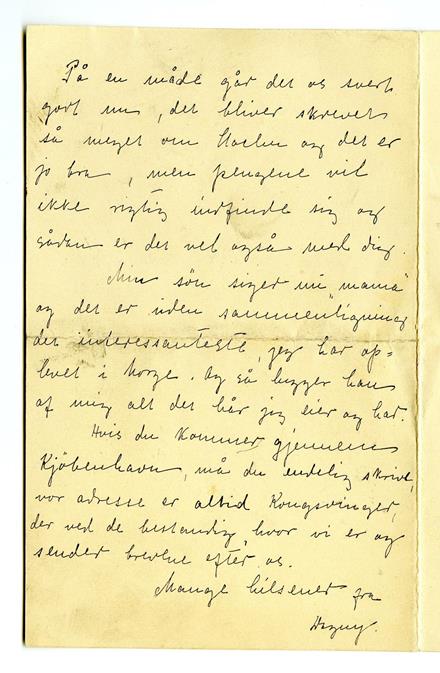 På en måde går det os svert
godt nu, det bliver skrevet
så meget om Stachu og det er
jo bra, men pengene vil
ikke rigtig indfinde sig og
sådan er det vel også med dig.
Min søn siger nu "mama"
og det er uden sammenligning
det interessanteste, jeg har op=
levet i Norge. Og så lugger han
af mig alt det hår jeg eier og har.
Hvis du kommer gjennem
Kjöbenhavn, må du endelig skrive,
vor adresse er altid Kongsvinger,
der ved de bestandig, hvor vi er og
sender brevene efter os.
Mange hilsener fra
Dagny.